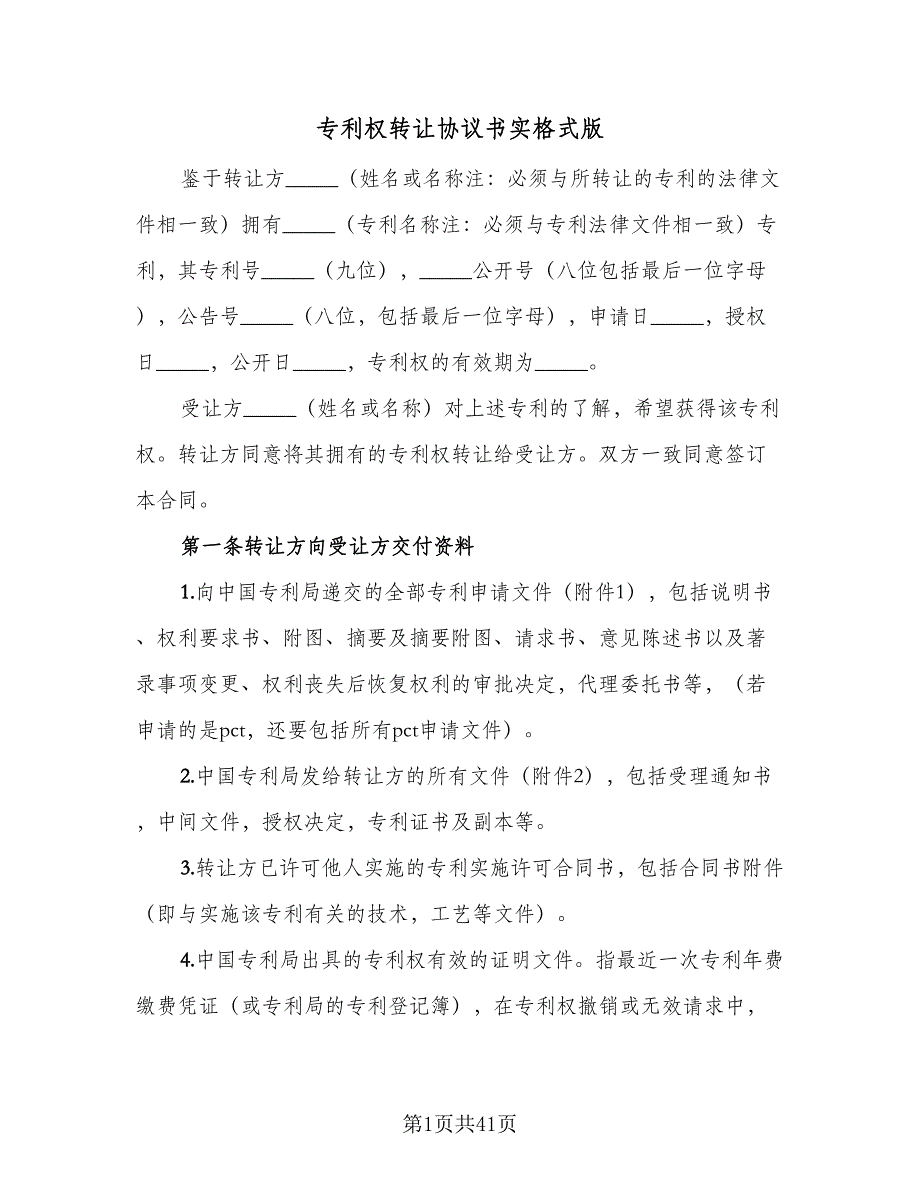 专利权转让协议书实格式版
鉴于转让方_____（姓名或名称注：必须与所转让的专利的法律文
件相一致）拥有_____（专利名称注：必须与专利法律文件相一致）专
利，其专利号_____（九位），_____公开号（八位包括最后一位字母
），公告号_____（八位，包括最后一位字母），申请日_____，授权
日_____，公开日_____，专利权的有效期为_____。
受让方_____（姓名或名称）对上述专利的了解，希望获得该专利
权。转让方同意将其拥有的专利权转让给受让方。双方一致同意签订
本合同。
第一条转让方向受让方交付资料
1.向中国专利局递交的全部专利申请文件（附件1），包括说明书
、权利要求书、附图、摘要及摘要附图、请求书、意见陈述书以及著
录事项变更、权利丧失后恢复权利的审批决定，代理委托书等，（若
申请的是pct，还要包括所有pct申请文件）。
2.中国专利局发给转让方的所有文件（附件2），包括受理通知书
，中间文件，授权决定，专利证书及副本等。
3.转让方已许可他人实施的专利实施许可合同书，包括合同书附件
（即与实施该专利有关的技术，工艺等文件）。
4.中国专利局出具的专利权有效的证明文件。指最近一次专利年费
缴费凭证（或专利局的专利登记簿），在专利权撤销或无效请求中，
第1页共41页